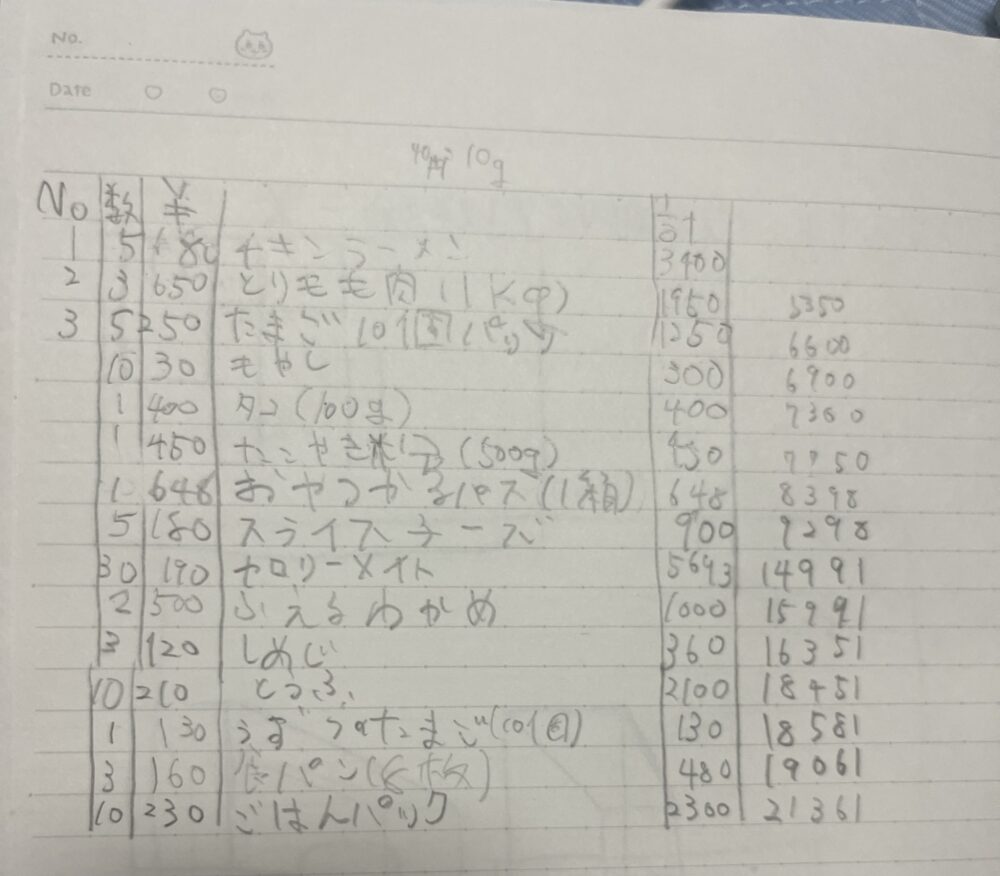 No.
Date
10g
No 数 ¥ 計
1 5 680 チキンラーメン 3400
2 3 650 とりもも肉(1Kg) 1950 5350
3 5 250 たまご10個パック 1250 6600
10 30 もやし 300 6900
1 400 タコ(100g) 400 7300
1 450 たこやき粉(500g) 450 7750
1 648 おやつかるぱす(1箱) 648 8398
5 180 スライスチーズ 900 9298
30 190 カロリーメイト 5693 14991
2 500 ふえるわかめ 1000 15991
3 120 しめじ 360 16351
10 210 とうふ 2100 18451
1 130 うずらのたまご(10個) 130 18581
3 160 食パン(8枚) 480 19061
10 230 ごはんパック 2300 21361